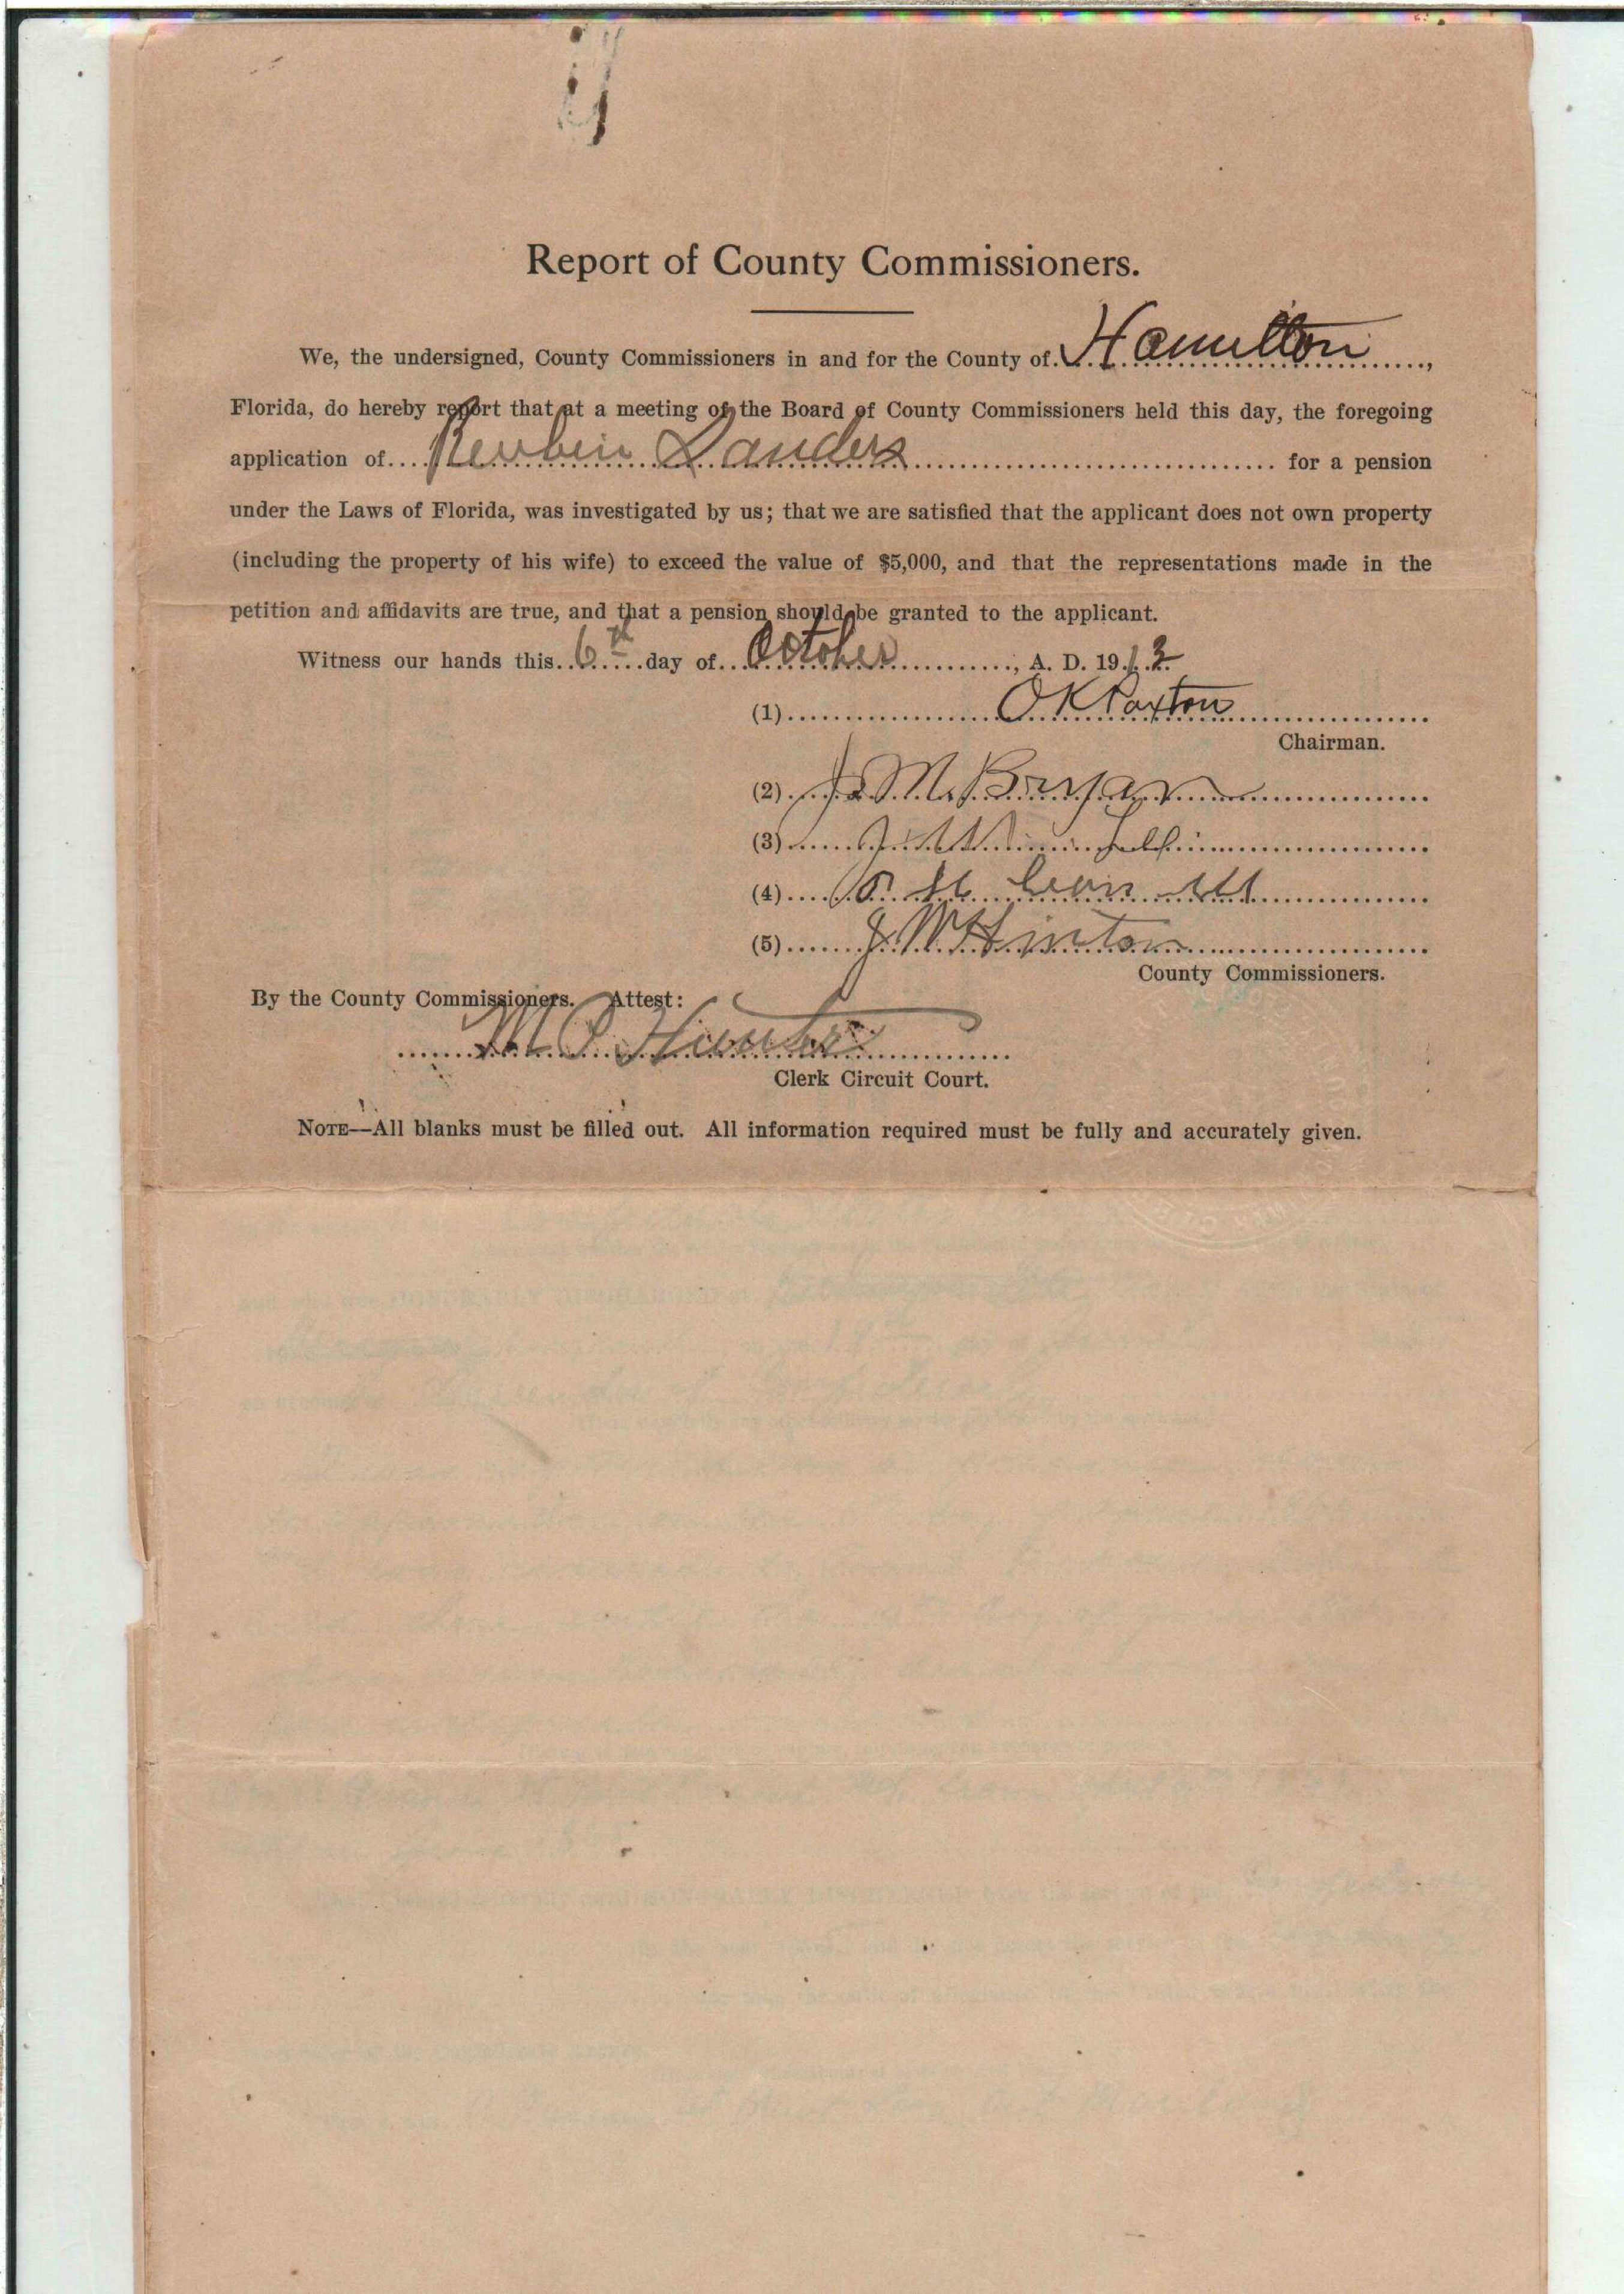 Report of County Commissioners.
We, the undersigned, County Commissioners in and for the County of Hamilton,
Florida, do hereby report that at a meeting of the Board of County Commissioners held this day, the foregoing
application of Reuben Landers for a pension
under the Laws of Florida, was investigated by us; that we are satisfied that the applicant does not own property
(including the property of his wife) to exceed the value of $5,000, and that the representations made in the
petition and affidavits are true, and that a pension should be granted to the applicant.
Witness our hands this 6th day of October, A. D. 1913
(1) O K Paxton
Chairman.
(2) J. M. Bryan
(3)
(4)
(5) J. W Hinton
County Commissioners.
By the County Commissioners. Attest:
Hunter
Clerk Circuit Court.
NOTE—All blanks must be filled out. All information required must be fully and accurately given.